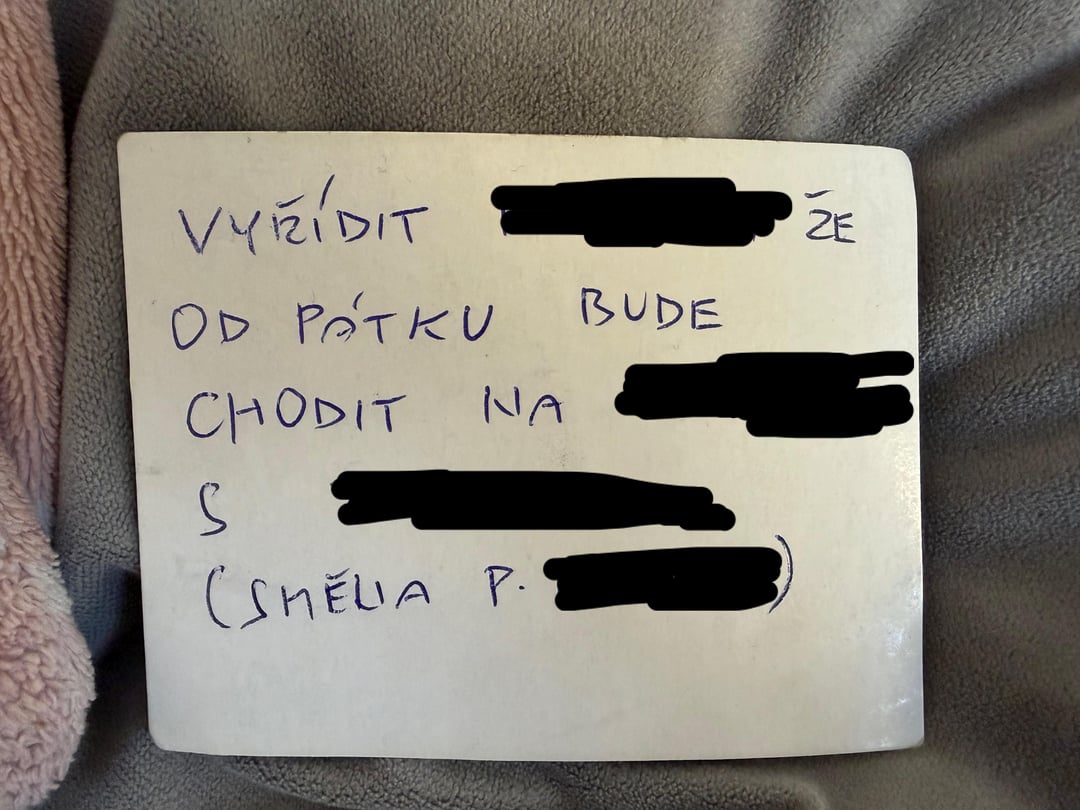 VYŘÍDIT ŽE
OD PÁTKU BUDE
CHODIT NA
S
(SMĚNA P. )